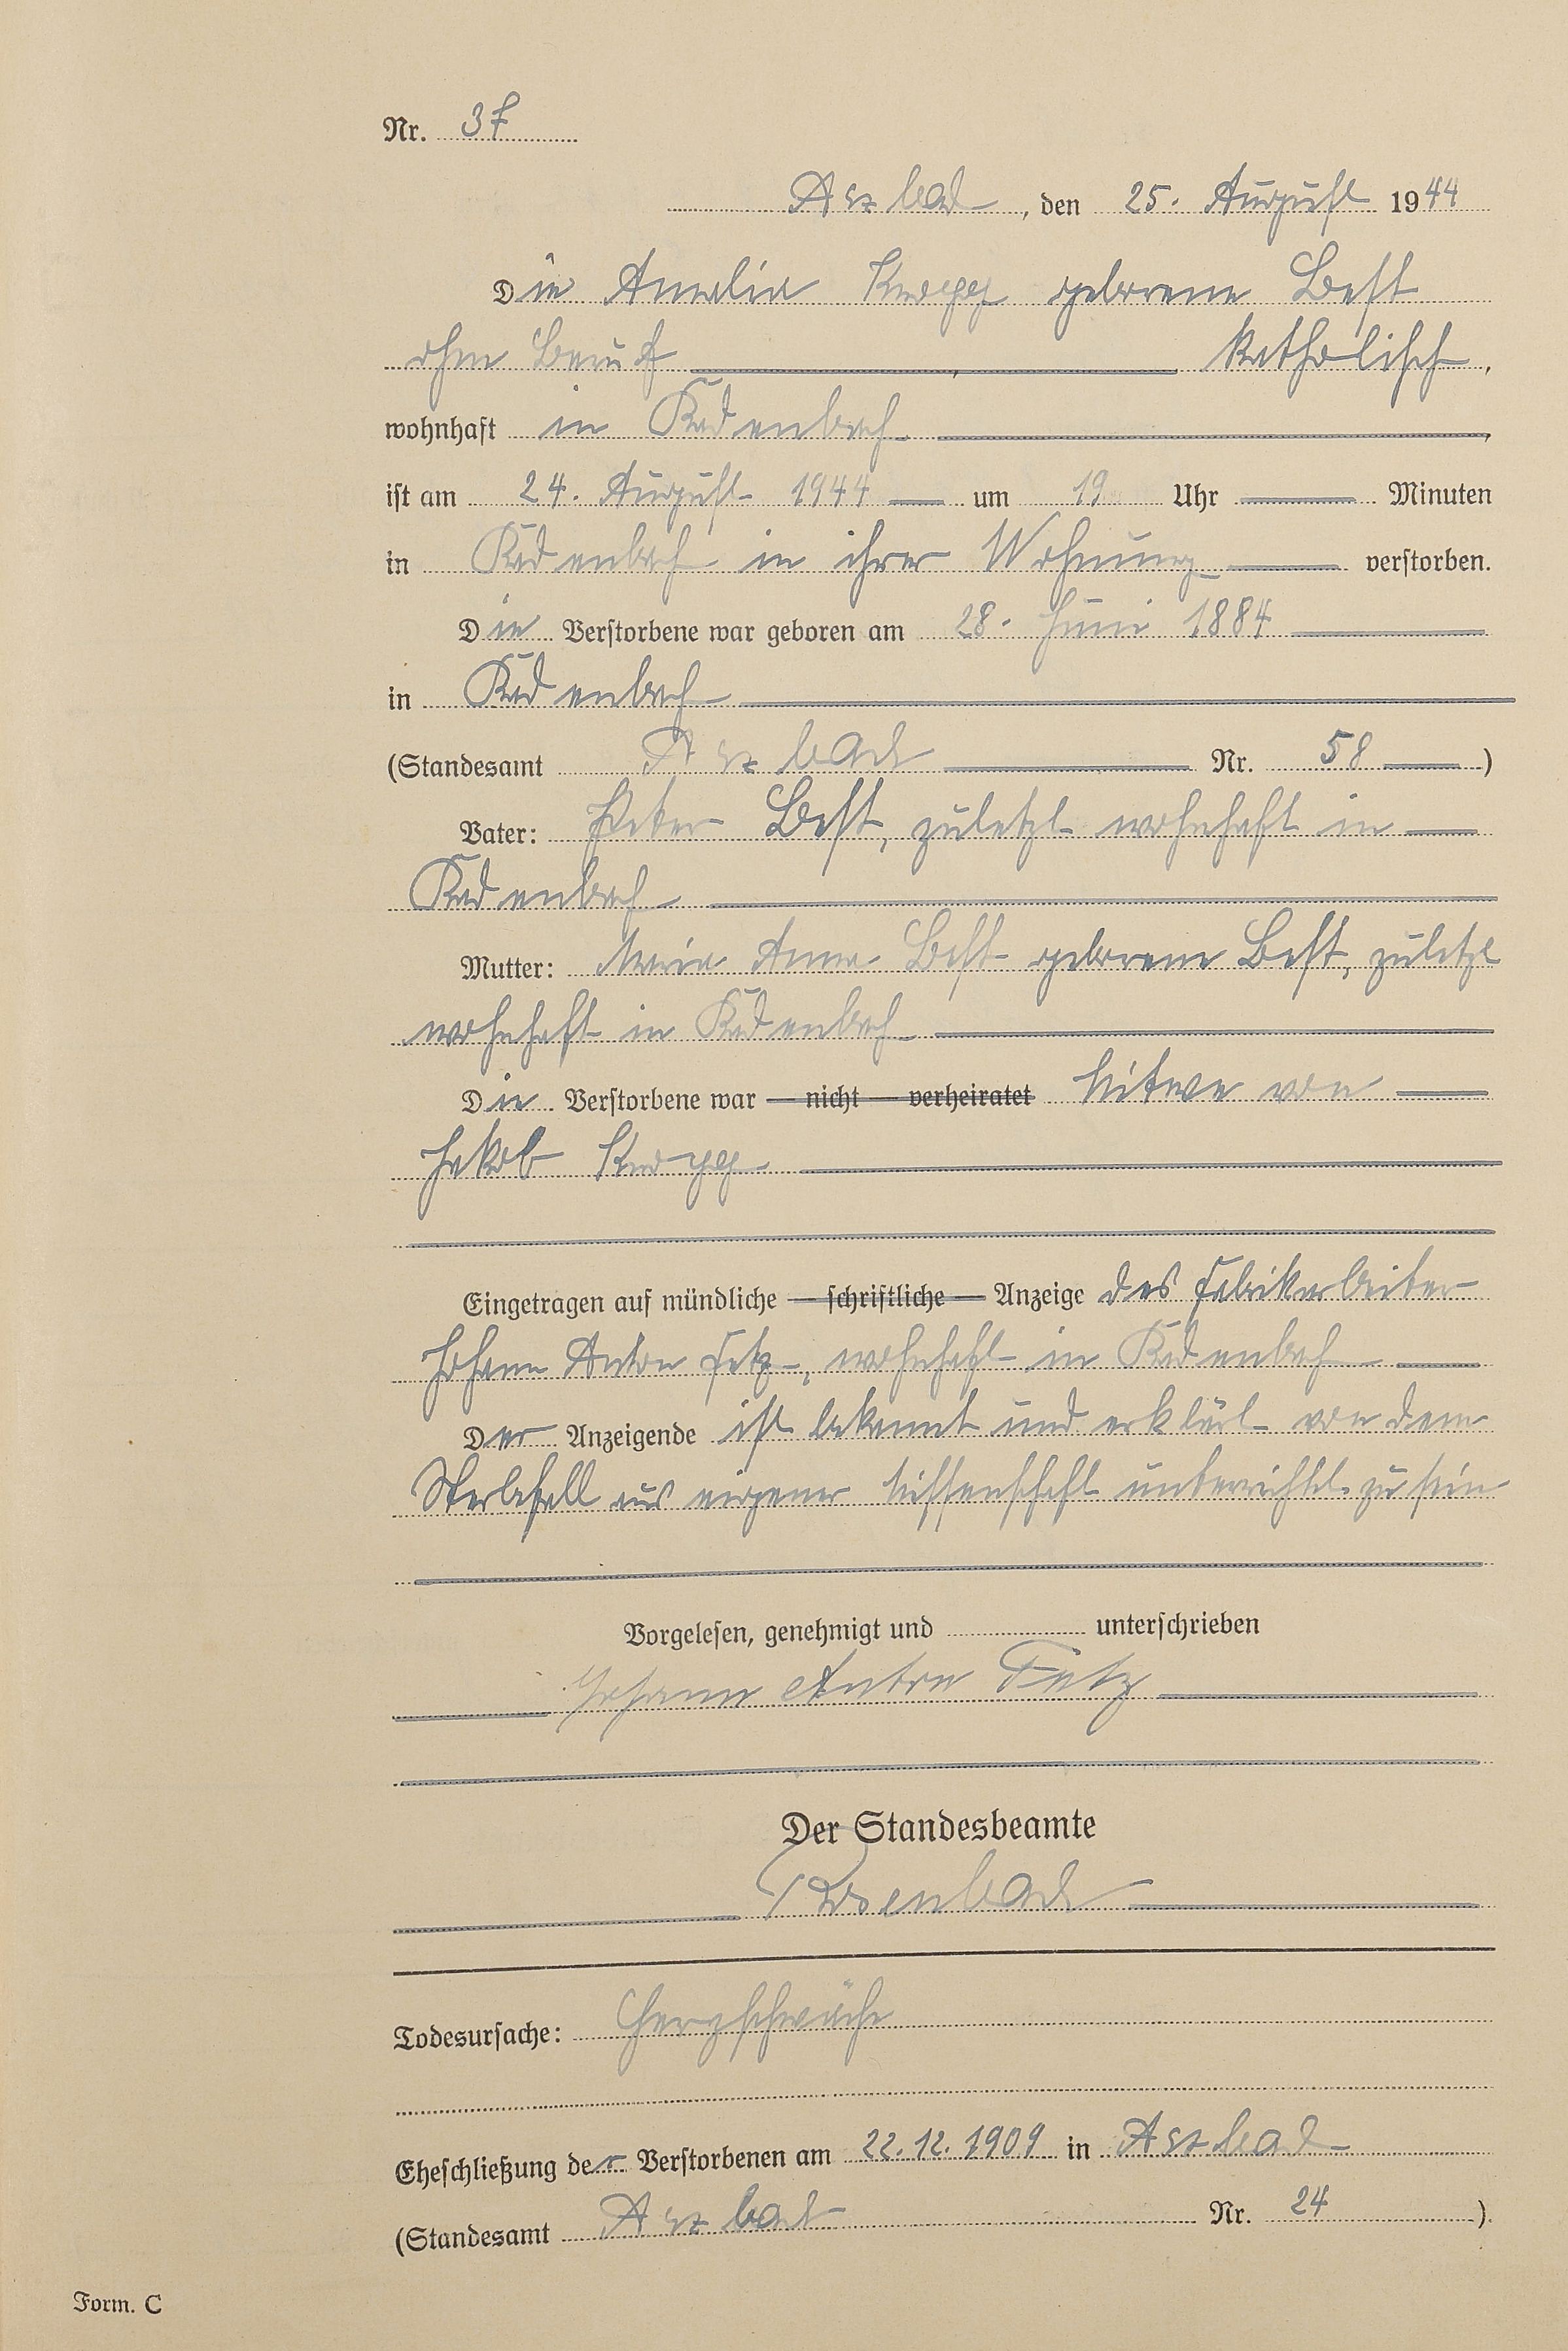 Nr. 37
Arzbach, den 25. August 1944
Die Amalia Knopp geborene Best
ohne Beruf katholisch,
wohnhaft in Kadenbach
ist am 24. August 1944 um 19 Uhr Minuten
in Kadenbach in ihrer Wohnung verstorben.
Die Verstorbene war geboren am 28. Juni 1884
in Kadenbach
(Standesamt Arzbach Nr. 58)
Vater: Peter Best, zuletzt wohnhaft in
Kadenbach
Mutter: Maria Anna Best geborene Best, zuletzt
wohnhaft in Kadenbach
Die Verstorbene war — nicht — verheiratet Witwe von
Jakob Knopp
Eingetragen auf mündliche — schriftliche — Anzeige des Fabrikarbeiter
Johann Anton Fetz, wohnhaft in Kadenbach
Der Anzeigende ist bekannt und erklärt von dem
Sterbefall aus eigener Wissenschaft unterrichtet zu sein
Vorgelesen, genehmigt und unterschrieben
Johann Anton Fetz
Der Standesbeamte
Rosenbach
Todesursache: Herzschwäche
Eheschließung der Verstorbenen am 22.12.1909 in Arzbach
(Standesamt Arzbach Nr. 24).
Form. C